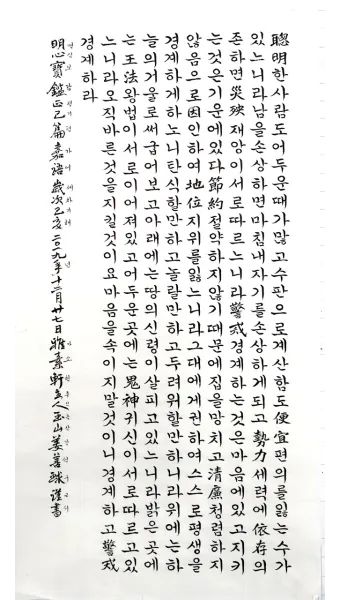 聰明한사람도어두운때가많고수판으로계산함도便宜편의를잃는수가
있느니라남을손상하면마침내자기를손상하게되고勢力세력에依存의
존하면災殃재앙이서로따르느니라警戒경계하는것은마음에있고지키
는것은기운에있다節約절약하지않기때문에집을망치고淸廉청렴하지
않음으로因인하여地位지위를잃느니라그대에게권하여스스로평생을
경계하게하노니탄식할만하고놀랄만하고두려워할만하니라위에는하
늘의거울로써굽어보고아래에는땅의신령이살피고있느니라밝은곳에
는王法왕법이서로이어져있고어두운곳에는鬼神귀신이서로따르고있
느니라오직바른것을지킬것이요마음을속이지말것이니경계하고警戒
경계하라
明心寶鑑正己篇嘉語歲次己亥二〇一九年十二月廿七日雅素軒主人玉山姜善 謹書